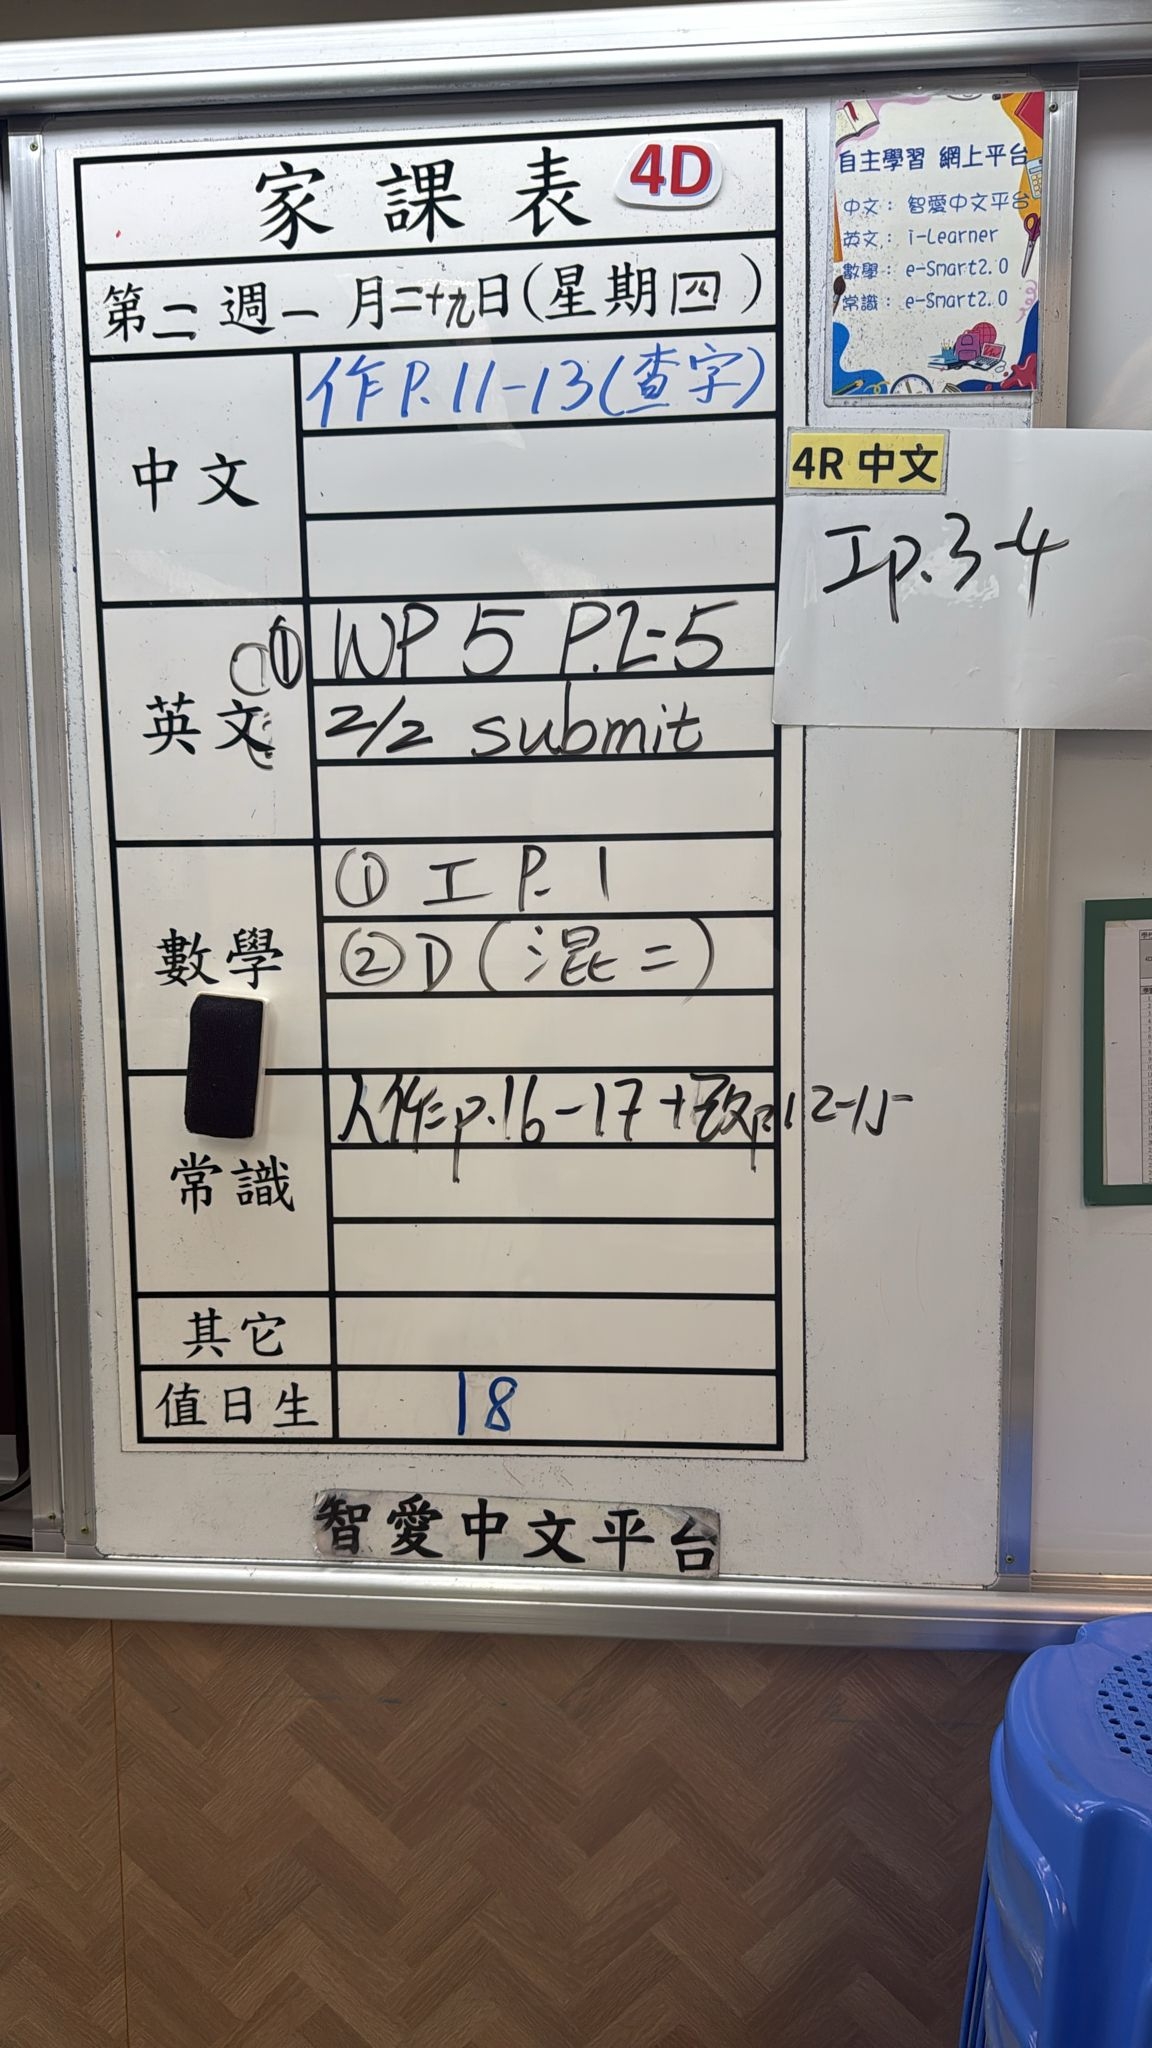 家課表 4D
第二週一月二十九日(星期四)
中文
作P.11-13(查字)
英文
① WP 5 P.2-5
2/2 submit
數學
① 工 P.1
② D (混二)
常識
p.16-17 + p.12-15
其它
值日生
18
智愛中文平台
自主學習 網上平台
中文: 智愛中文平台
英文: i-Learner
數學: e-Smart2.0
常識: e-Smart2.0
4R 中文
工p.3-4